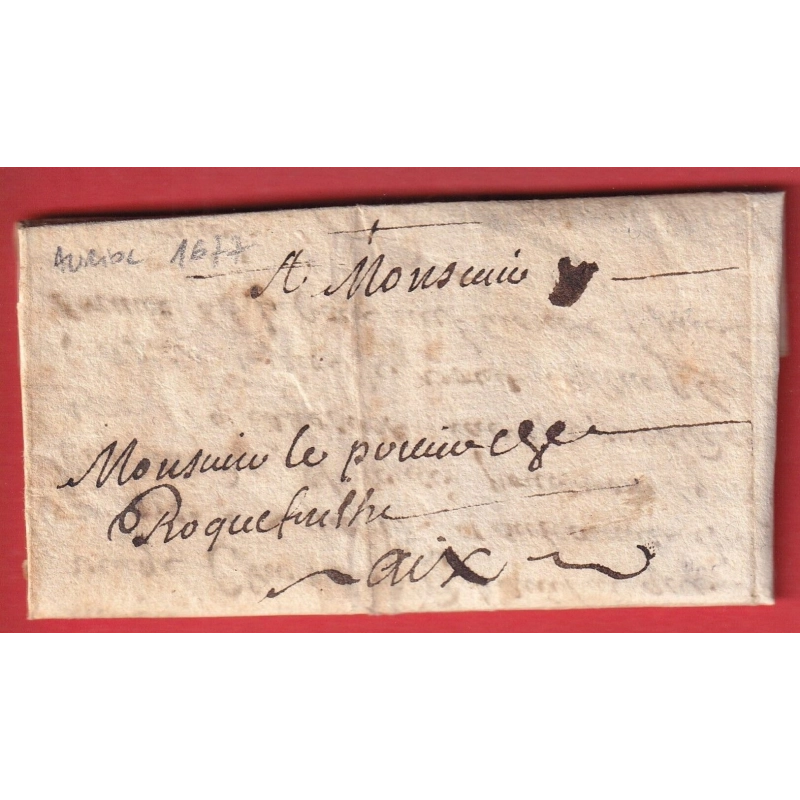 AURIOL 1677
A Monsieur
Monsieur le prieur
Roquefeuilhe
aix